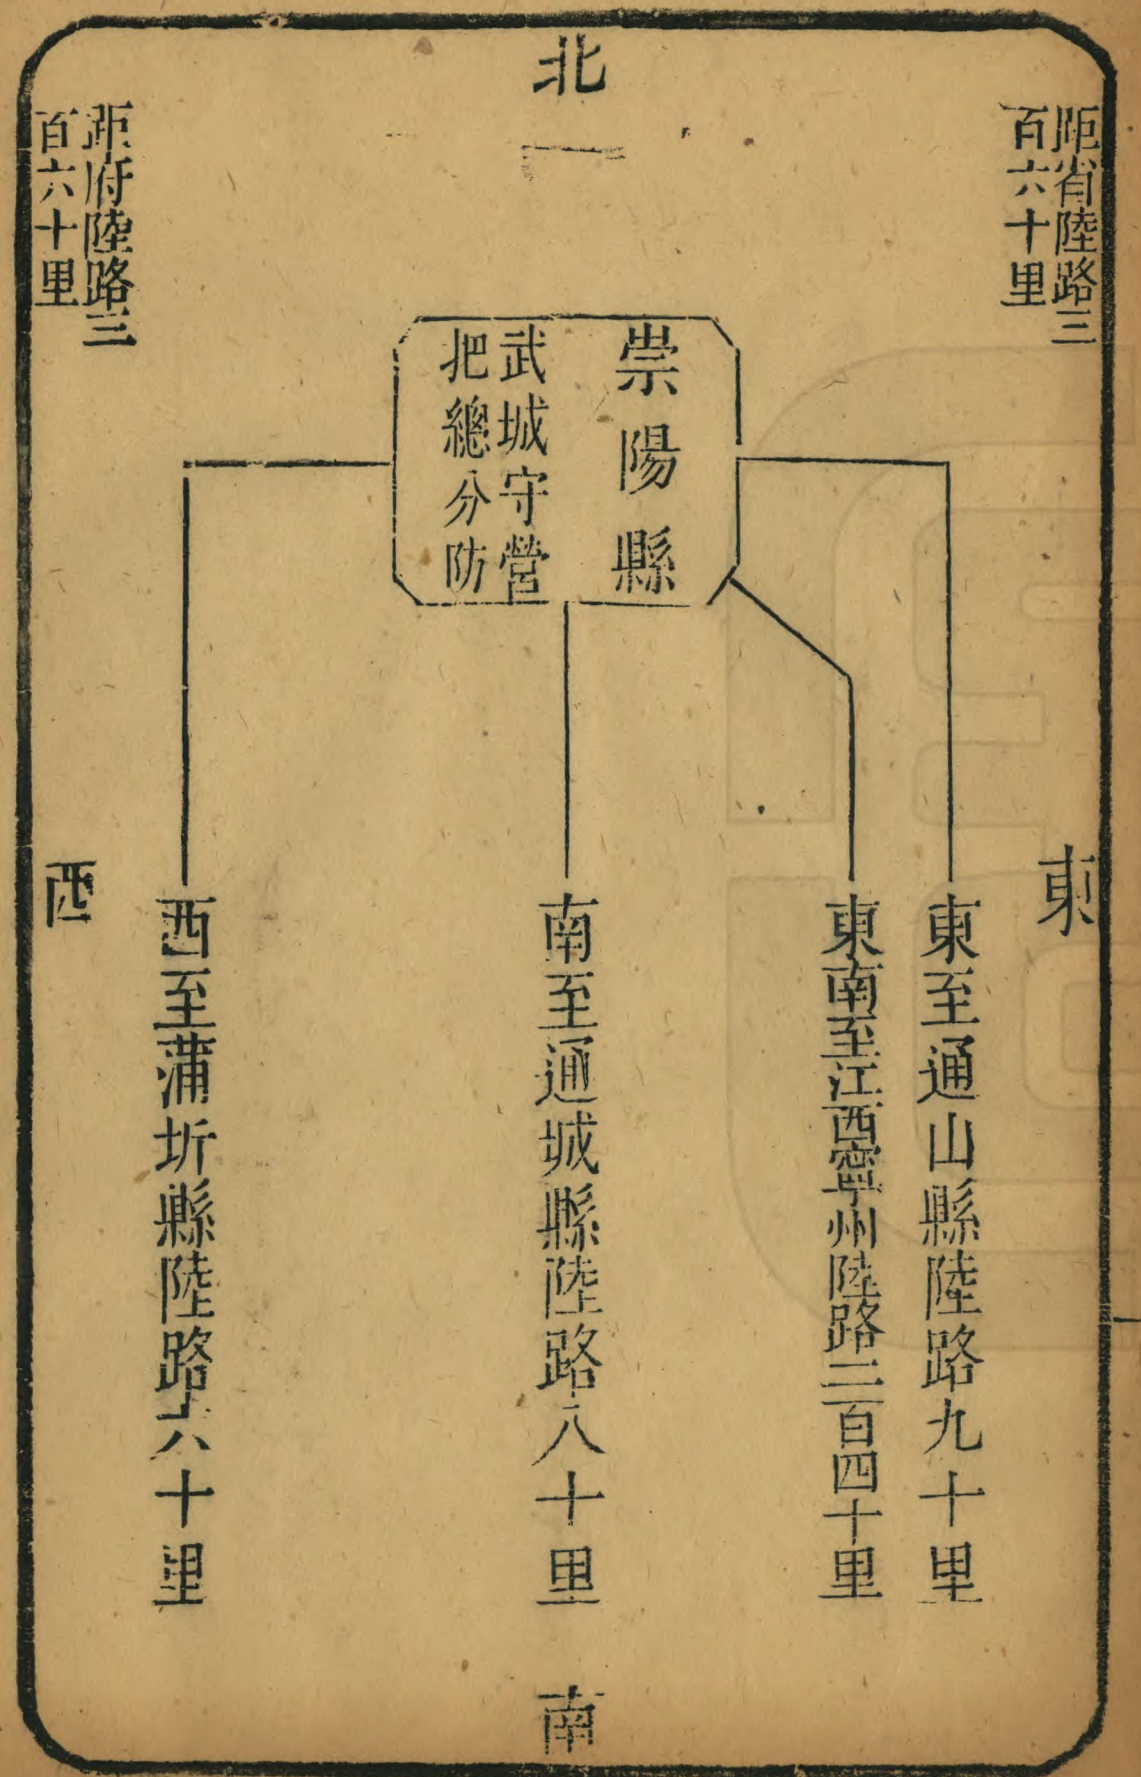 北
距省陸路三
百六十里
距府陸路三
百六十里
崇陽縣
武城守營
把總分防
東
東至通山縣陸路九十里
東南至江西寧州陸路二百四十里
南至通城縣陸路八十里
西至蒲圻縣陸路六十里
西
南